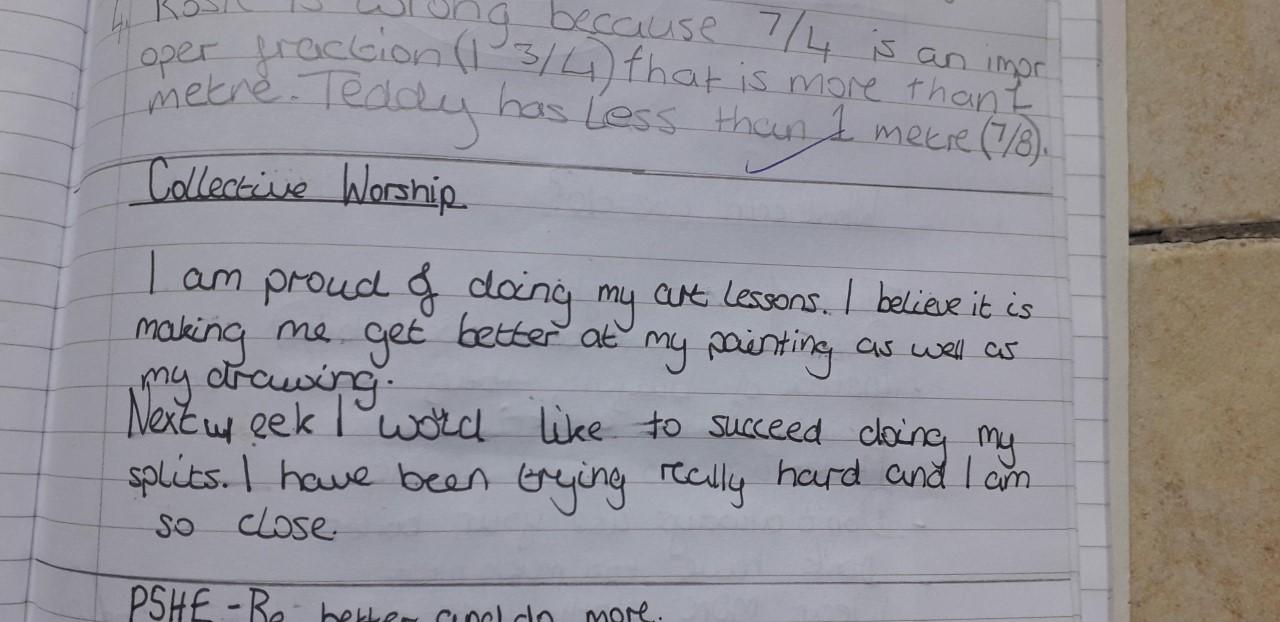 4. Rosie is wrong because 7/4 is an impr
oper fraction (1 3/4) that is more than 1
metre. Teddy has less than 1 metre (7/8).
Collective Worship
I am proud of doing my art lessons. I believe it is
making me get better at my painting as well as
my drawing.
Next week I would like to succeed doing my
splits. I have been trying really hard and I am
so close.
PSHE - Be better and do more.